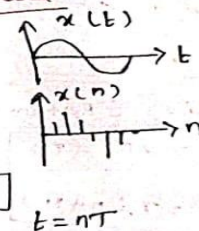 x(t)
t
x(n)
n
t = nT